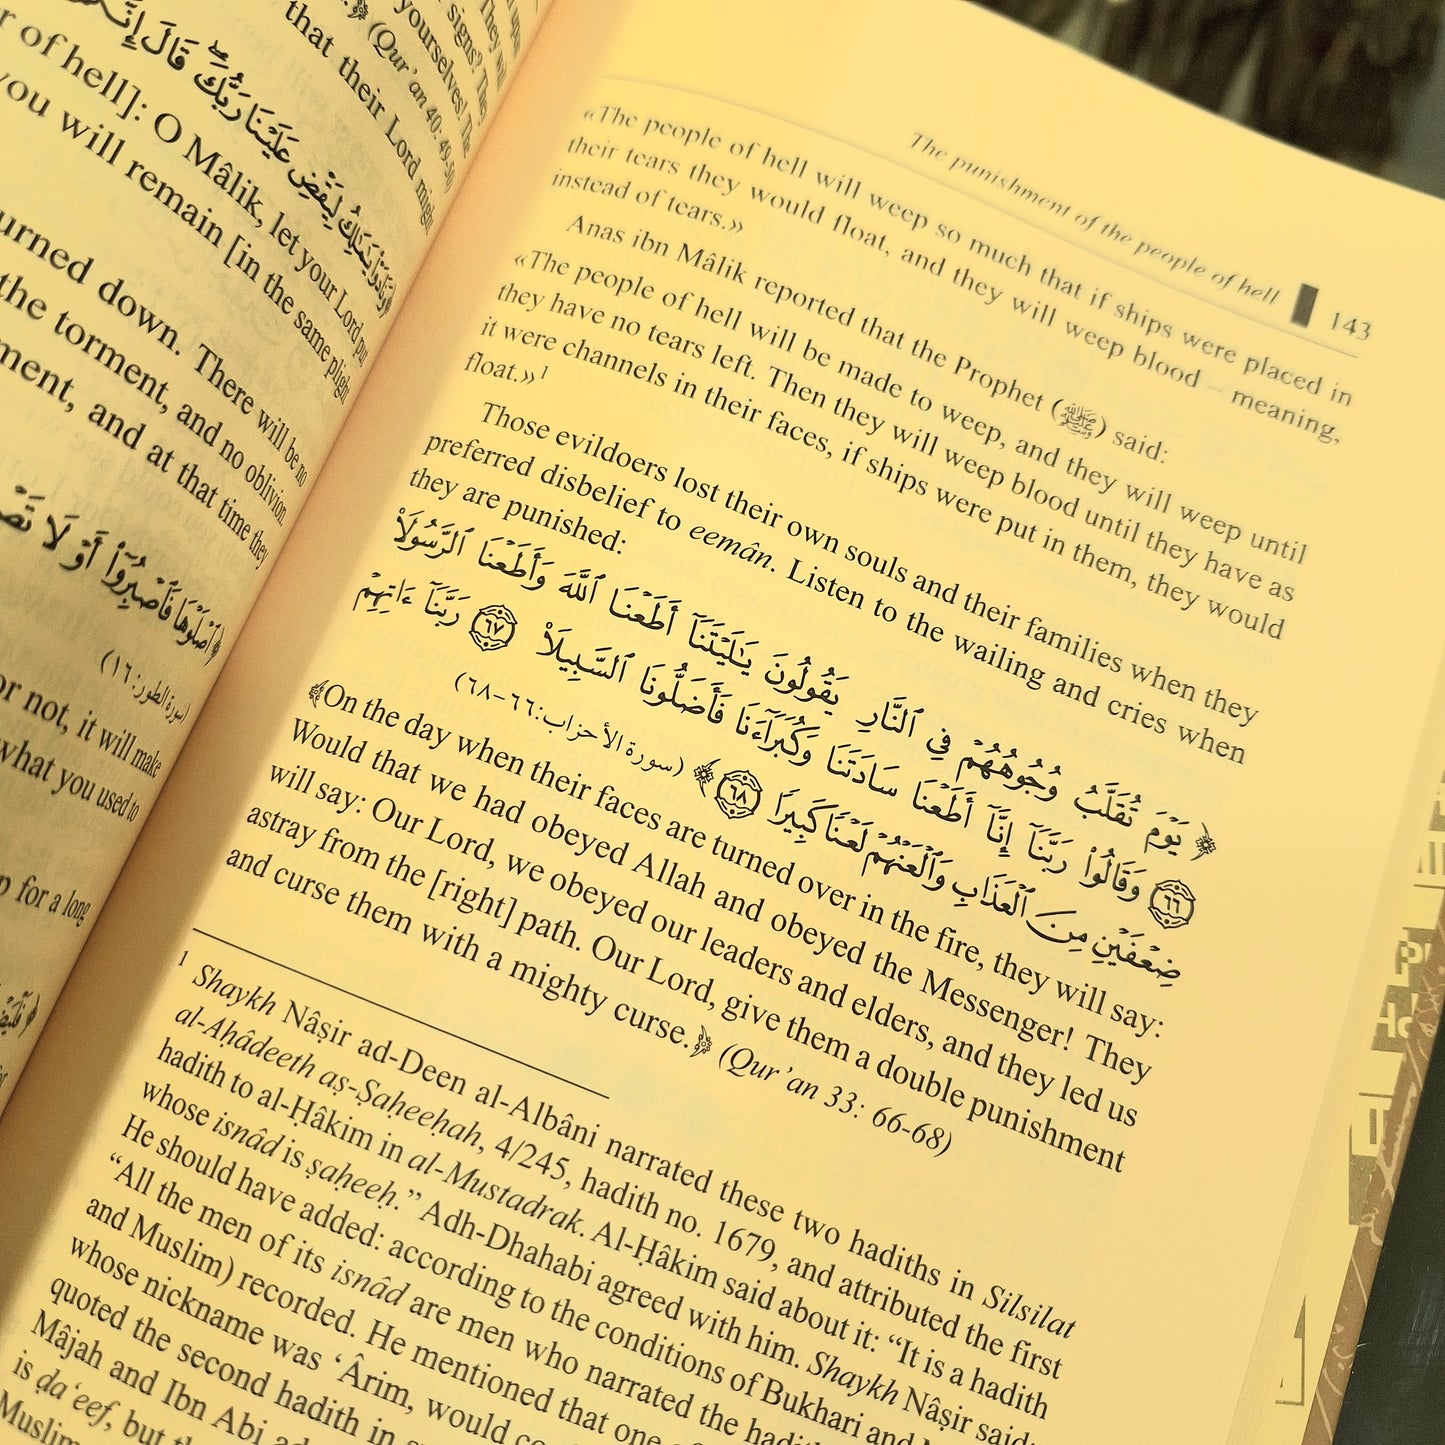 yourselves! The
(Qur’an 40: 49-50)
that their Lord might
r of hell]: O Mâlik, let your Lord put
you will remain [in the same plight
urned down. There will be no
the torment, and no oblivion.
ment, and at that time they
(سورة الطور: ١٦)
or not, it will make
what you used to
p for a long
The punishment of the people of hell 143
«The people of hell will weep so much that if ships were placed in
their tears they would float, and they will weep blood – meaning,
instead of tears.»
Anas ibn Mâlik reported that the Prophet (ﷺ) said:
«The people of hell will be made to weep, and they will weep until
they have no tears left. Then they will weep blood until they have as
it were channels in their faces, if ships were put in them, they would
float.»1
Those evildoers lost their own souls and their families when they
preferred disbelief to eemân. Listen to the wailing and cries when
they are punished:
﴿ يَوْمَ تُقَلَّبُ وُجُوهُهُمْ فِي ٱلنَّارِ يَقُولُونَ يَـٰلَيْتَنَآ أَطَعْنَا ٱللَّهَ وَأَطَعْنَا ٱلرَّسُولَا۠
٦٦ وَقَالُوا۟ رَبَّنَآ إِنَّآ أَطَعْنَا سَادَتَنَا وَكُبَرَآءَنَا فَأَضَلُّونَا ٱلسَّبِيلَا۠ ٦٧ رَبَّنَآ ءَاتِهِمْ
ضِعْفَيْنِ مِنَ ٱلْعَذَابِ وَٱلْعَنْهُمْ لَعْنًا كَبِيرًا ٦٨ ﴾ (سورة الأحزاب: ٦٦-٦٨)
﴿On the day when their faces are turned over in the fire, they will say:
Would that we had obeyed Allah and obeyed the Messenger! They
will say: Our Lord, we obeyed our leaders and elders, and they led us
astray from the [right] path. Our Lord, give them a double punishment
and curse them with a mighty curse.﴾ (Qur’an 33: 66-68)
1 Shaykh Nâṣir ad-Deen al-Albâni narrated these two hadiths in Silsilat
al-Aḥâdeeth aṣ-Ṣaḥeeḥah, 4/245, hadith no. 1679, and attributed the first
hadith to al-Ḥâkim in al-Mustadrak. Al-Ḥâkim said about it: “It is a hadith
whose isnâd is ṣaḥeeḥ.” Adh-Dhahabi agreed with him. Shaykh Nâṣir said:
He should have added: according to the conditions of Bukhari and
“All the men of its isnâd are men who narrated the
and Muslim) recorded. He mentioned that one
whose nickname was ‘Ârim, would
quoted the second hadith in
Mâjah and Ibn Abi
is ḍa‘eef, but
Muslim